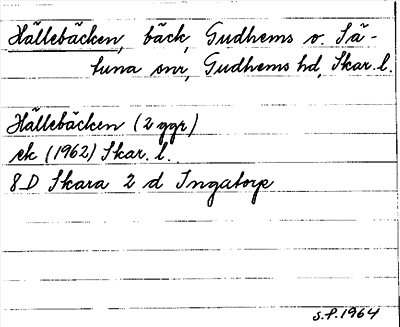 Hällebäcken, bäck, Gudhems o. Sä-
tuna snr, Gudhems hd, Skar. l.
Hällebäcken (2 ggr)
ek (1962) Skar. l.
8D Skara 2 d Ingatorp
S.P. 1964